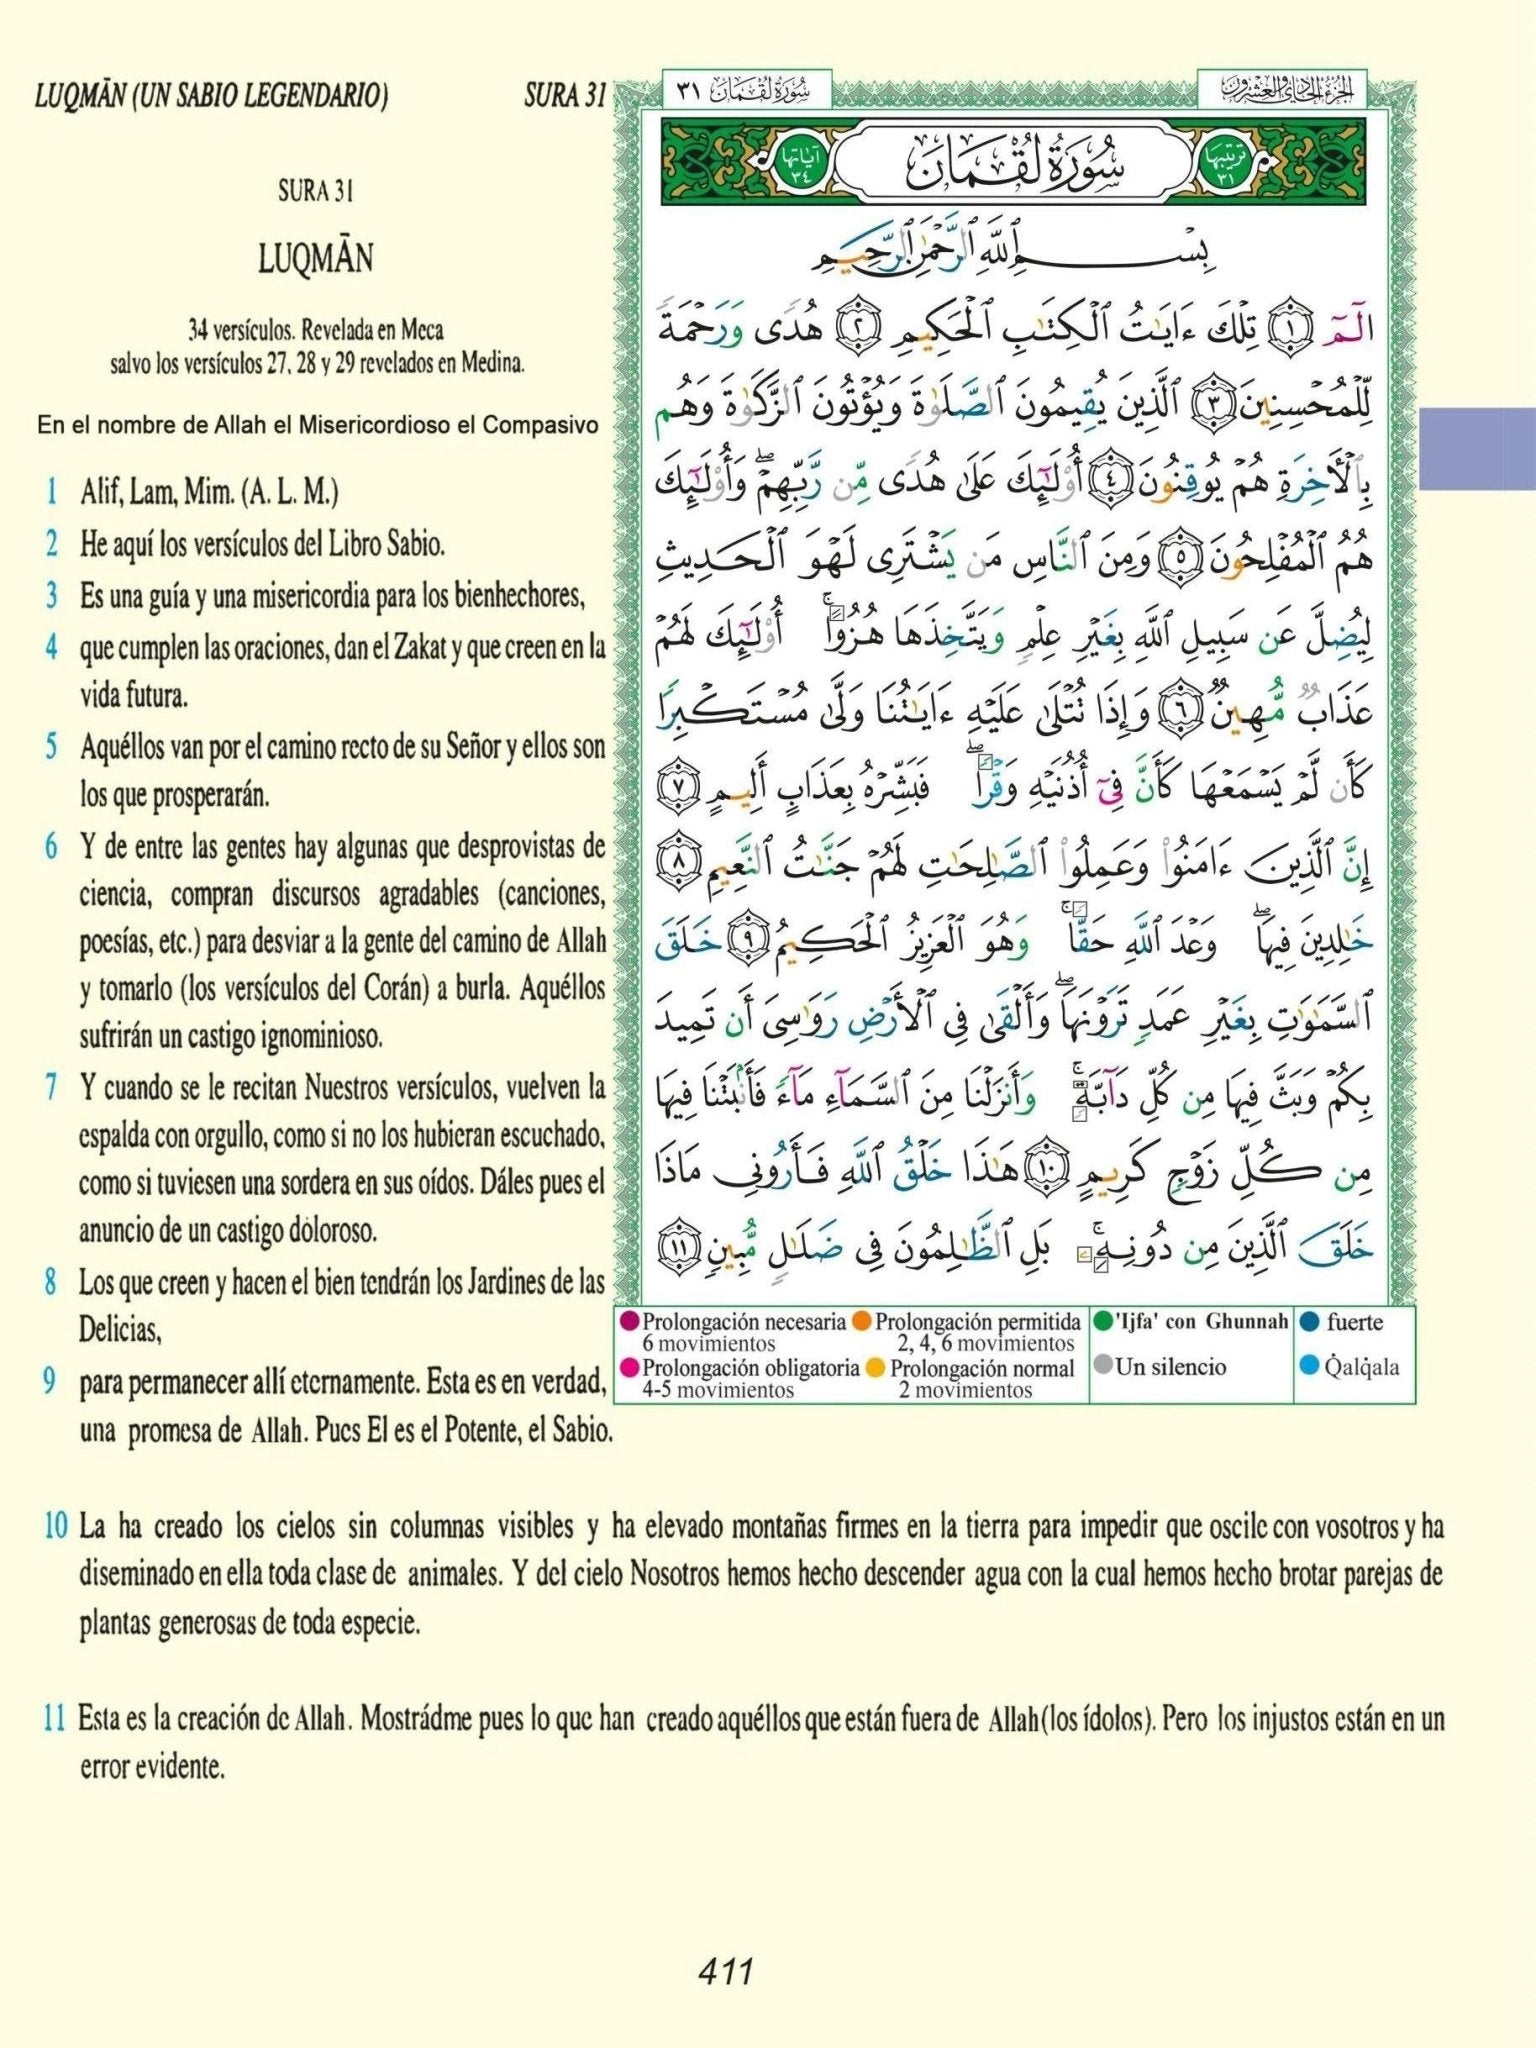 LUQMĀN (UN SABIO LEGENDARIO) SURA 31
SURA 31
LUQMĀN
34 versículos. Revelada en Meca
salvo los versículos 27, 28 y 29 revelados en Medina.
En el nombre de Allah el Misericordioso el Compasivo
1 Alif, Lam, Mim. (A. L. M.)
2 He aquí los versículos del Libro Sabio.
3 Es una guía y una misericordia para los bienhechores,
4 que cumplen las oraciones, dan el Zakat y que creen en la
vida futura.
5 Aquéllos van por el camino recto de su Señor y ellos son
los que prosperarán.
6 Y de entre las gentes hay algunas que desprovistas de
ciencia, compran discursos agradables (canciones,
poesías, etc.) para desviar a la gente del camino de Allah
y tomarlo (los versículos del Corán) a burla. Aquéllos
sufrirán un castigo ignominioso.
7 Y cuando se le recitan Nuestros versículos, vuelven la
espalda con orgullo, como si no los hubieran escuchado,
como si tuviesen una sordera en sus oídos. Dáles pues el
anuncio de un castigo doloroso.
8 Los que creen y hacen el bien tendrán los Jardines de las
Delicias,
9 para permanecer allí eternamente. Esta es en verdad,
una promesa de Allah. Pues El es el Potente, el Sabio.
الجزء الحادي والعشرون
سورة لقمان ٣١
ترتيبها
٣١
سُورَةُ لُقْمَان
آياتها
٣٤
بِسْمِ ٱللَّهِ ٱلرَّحْمَٰنِ ٱلرَّحِيمِ
الٓمٓ ١ تِلْكَ ءَايَٰتُ ٱلْكِتَٰبِ ٱلْحَكِيمِ ٢ هُدًى وَرَحْمَةً
لِّلْمُحْسِنِينَ ٣ ٱلَّذِينَ يُقِيمُونَ ٱلصَّلَوٰةَ وَيُؤْتُونَ ٱلزَّكَوٰةَ وَهُم
بِٱلْأَخِرَةِ هُمْ يُوقِنُونَ ٤ أُوْلَٰٓئِكَ عَلَىٰ هُدًى مِّن رَّبِّهِمْ ۖ وَأُوْلَٰٓئِكَ
هُمُ ٱلْمُفْلِحُونَ ٥ وَمِنَ ٱلنَّاسِ مَن يَشْتَرِى لَهْوَ ٱلْحَدِيثِ
لِيُضِلَّ عَن سَبِيلِ ٱللَّهِ بِغَيْرِ عِلْمٍ وَيَتَّخِذَهَا هُزُوًا ۚ أُوْلَٰٓئِكَ لَهُمْ
عَذَابٌ مُّهِينٌ ٦ وَإِذَا تُتْلَىٰ عَلَيْهِ ءَايَٰتُنَا وَلَّىٰ مُسْتَكْبِرًا
كَأَن لَّمْ يَسْمَعْهَا كَأَنَّ فِىٓ أُذُنَيْهِ وَقْرًا ۖ فَبَشِّرْهُ بِعَذَابٍ أَلِيمٍ ٧
إِنَّ ٱلَّذِينَ ءَامَنُوا۟ وَعَمِلُوا۟ ٱلصَّٰلِحَٰتِ لَهُمْ جَنَّٰتُ ٱلنَّعِيمِ ٨
خَٰلِدِينَ فِيهَا ۖ وَعْدَ ٱللَّهِ حَقًّا ۚ وَهُوَ ٱلْعَزِيزُ ٱلْحَكِيمُ ٩ خَلَقَ
ٱلسَّمَٰوَٰتِ بِغَيْرِ عَمَدٍ تَرَوْنَهَا ۖ وَأَلْقَىٰ فِى ٱلْأَرْضِ رَوَٰسِىَ أَن تَمِيدَ
بِكُمْ وَبَثَّ فِيهَا مِن كُلِّ دَآبَّةٍ ۚ وَأَنزَلْنَا مِنَ ٱلسَّمَآءِ مَآءً فَأَنۢبَتْنَا فِيهَا
مِن كُلِّ زَوْجٍ كَرِيمٍ ١٠ هَٰذَا خَلْقُ ٱللَّهِ فَأَرُونِى مَاذَا
خَلَقَ ٱلَّذِينَ مِن دُونِهِ ۚ بَلِ ٱلظَّٰلِمُونَ فِى ضَلَٰلٍ مُّبِينٍ ١١
Prolongación necesaria Prolongación permitida 'Ijfa' con Ghunnah fuerte
6 movimientos 2, 4, 6 movimientos
Prolongación obligatoria Prolongación normal Un silencio Q̇alq̇ala
4-5 movimientos 2 movimientos
10 La ha creado los cielos sin columnas visibles y ha elevado montañas firmes en la tierra para impedir que oscile con vosotros y ha
diseminado en ella toda clase de animales. Y del cielo Nosotros hemos hecho descender agua con la cual hemos hecho brotar parejas de
plantas generosas de toda especie.
11 Esta es la creación de Allah. Mostrádme pues lo que han creado aquéllos que están fuera de Allah (los ídolos). Pero los injustos están en un
error evidente.
411